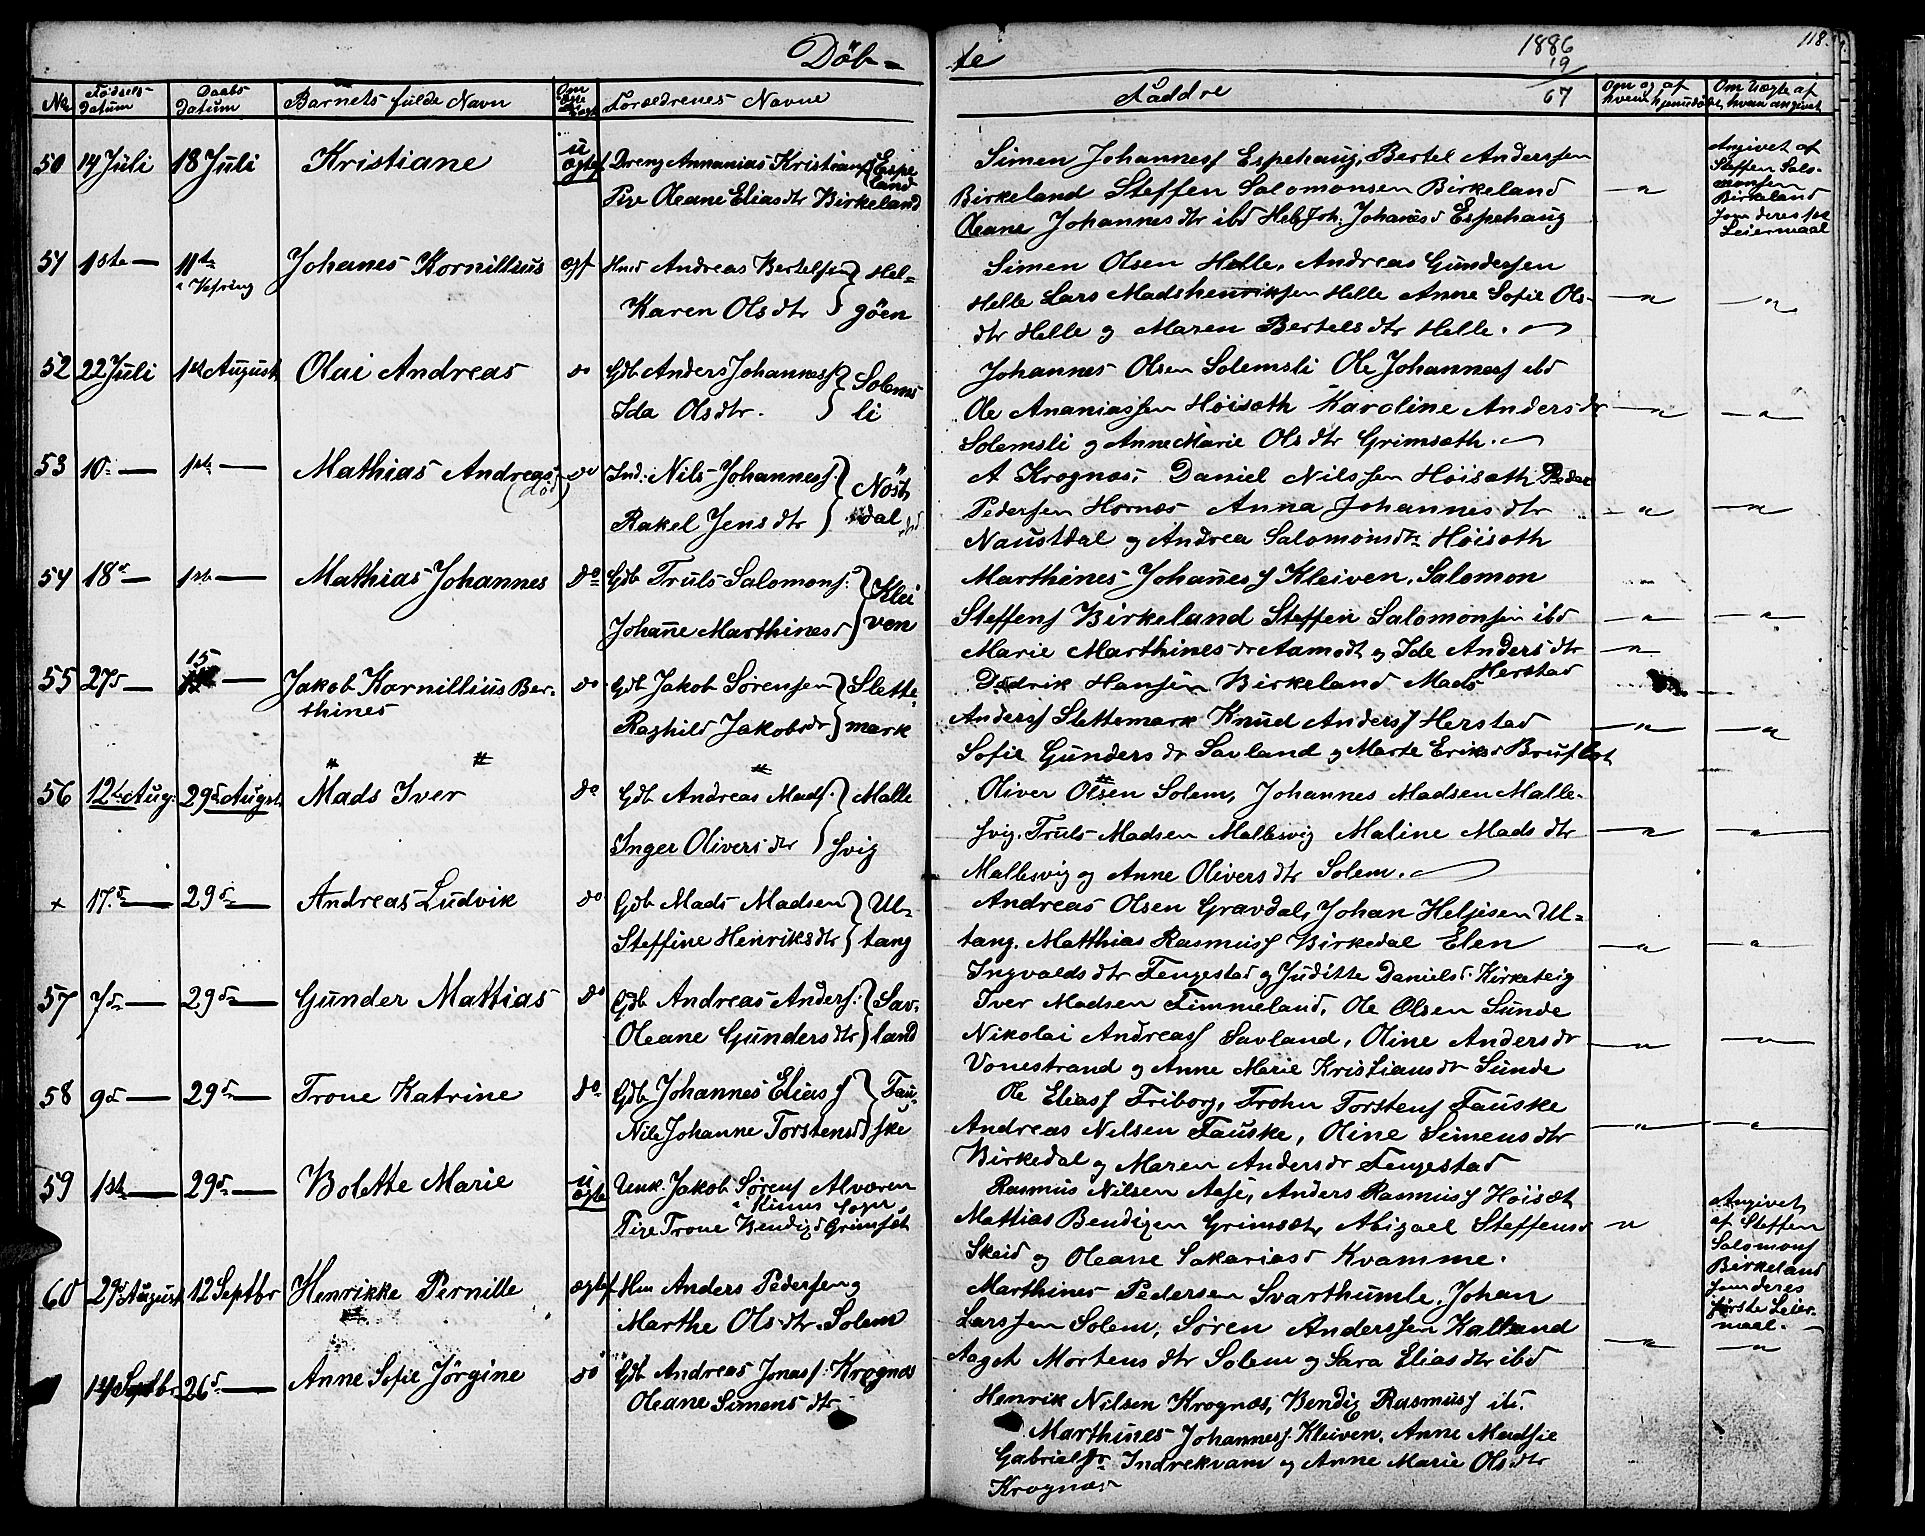 Döb-
te
1886
19
67
118.
No
Fødsels-
Datum
Daabs
Datum
Barnets fulde Navn
Om
Forældrenes Navne
Faddre
Om og af
hvem hjemdøbt
Om Uægte af
hvem angivet
50 14 Juli 18 Juli Kristiane u ægtef Dreng Annanias Kristians Espe
land
Pige Oleane Eliasdtr Birkeland
Simen Johannesf Espehaug, Bertel Anderssen
Birkeland Steffen Salomonsen Birkeland
Oleane Johannesdtr ibd Hels Joh. Johanesd Espehaug
Angivet af
Steffen Salo-
monsen
Birkeland
som deres
Leiermaal
51 1ste — 11te Johanes Kornillius ægf Hmd Andreas Bertelsen Hel-
i Vefring
Karen Olsdtr göen
Simen Olsen Helle, Andreas Gundersen
Helle Lars Madshenriksen Helle Anne Sofie Ols-
dtr Helle og Maren Bertelsdtr Helle.
52 22 Juli 1ste August Olai Andreas do Gdb Anders Johannesf Solems
Ida Olsdtr. li
Johannes Olsen Solemsli Ole Johannesf ibd
Ole Ananiassen Høisæth Karoline Andersdr
Solemsli og Anne Marie Olsdtr Grimsæth.
53 10 — 1ste — Mathias Andreas do Ind: Nils Johannesf. Nöst
(død)
Rakel Jensdtr dal
A Krognæs, Daniel Nilssen Høisæth Peder
Pedersen Hornæs Anna Johannesdtr
Naustdal og Andrea Salomonsdtr Høisæth
54 18d — 1ste — Mathias Johannes do Gdb Truls Salomons: Klei
Johane Marthinesd ven
Marthines Johanesf Kleiven, Salomon
Steffens Birkeland Steffen Salomonsen ibd
Marie Marthines dr Aamodt og Ide Andersdtr
Herstad
55 27d — 15 — Jakob Kornillius Ber-
thines
do Gdb Jakob Sørensen Slette-
Raghild Jakobsdr mark
Didrik Hansen Birkeland Mads
Andersf Slettemark Knud Andersf Herstad
Sofie Gundersdr Savland og Marte Eriksd Bruflot
56 12te Aug. 29de Augst. Mads Iver do Gdb Andreas Madsf. Malle
Inger Oliversdtr svig
Oliver Olsen Solem, Johannes Madsen Malle-
svig. Truls Madsen Mallesvig Maline Madsdtr
Mallesvig og Anne Oliversdtr Solem.
x 17.d — 29d — Andreas Ludvik do Gdb Mads Madsen Ul-
Steffine Henriksdtr tang
Andreas Olsen Gravdal, Johan Helgesen Ul-
tang. Matthias Rasmusf Birkedal Elen
Ingvaldsdtr Fengestad og Juditte Danielsd. Kirketeig
57 7d — 29d — Gunder Mattias do Gdb Andreas Anders: Sav-
Oleane Gundersdtr land
Iver Madsen Fimmeland, Ole Olsen Sunde
Nikolai Andreasf Savland, Oline Andersdr
Vonestrand og Anne Marie Kristiansdtr Sunde
58 9d — 29d — Trone Katrine do Gdb. Johannes Eliasf Fau-
Nils Johanne Torstensd ske
Ole Eliasf Friborg, Trohn Torstensf Fauske
Andreas Nilsen Fauske, Oline Simensdtr
Birkedal og Maren Andersdr Fengestad
59 1ste — 29d — Bolette Marie u ægte Unk. Jakob Sørens Alværen
i Kinns Sogn,
Pige Trone Bendigd Grimsæt
Rasmus Nilsen Aase, Anders Rasmusf Høisæt
Mattias Bendixen Grimsæt, Abigael Steffensd
Skeid og Oleane Sakariasd Kvamme.
Angivet
af Steffen
Salomons
Birkeland
som deres
første Leier-
maal.
60 29d August 12 Septbr Henrikke Pernille ægtef Hm Anders Pedersen og
Marthe Olsdtr Solem
Marthines Pedersen Svarthumle, Johan
Larssen Solem, Søren Anderssen Kalland
Aaget Mortensdtr Solem og Sara Eliasdtr ibd
14 Septbr 26d — Anne Sofie Jörgine do Gdb Andreas Jonasf: Krognæs
Oleane Simensdtr
Henrik Nilsen Krognæs, Bendig Rasmusf ib.
Marthines Johannesf. Kleiven, Anne Madsie
Gabrielsdr Indrekvam og Anne Marie Olsdtr
Krognæs